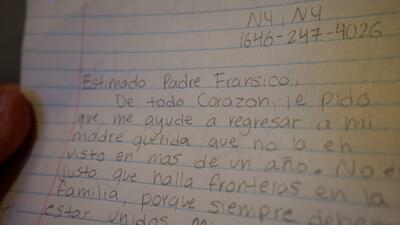 NY, NY
1646-247-4026
Estimado Padre Fransico,
De todo Corazon, le pido
que me ayude a regresar a mi
madre querida que no la eh
visto en mas de un año. No e
justo que halla fronteras en la
familia, porque siempre deban
estar unidos